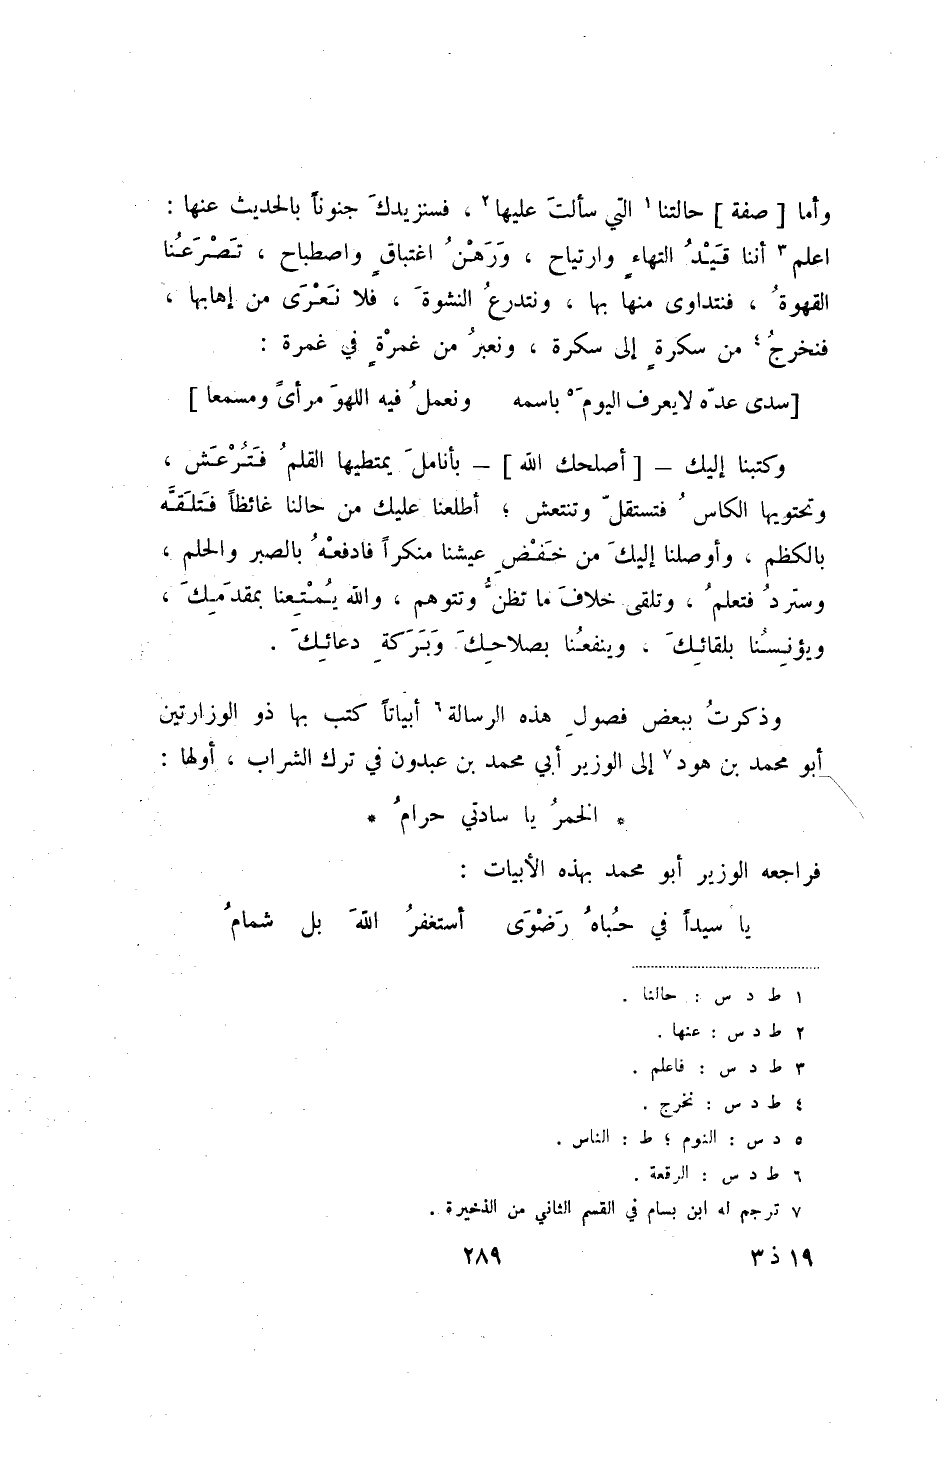 وأما [ صفة ] حالتنا١ التي سألتَ عليها٢ ، فسنزيدكَ جنوناً بالحديث عنها :
اعلم٣ أننا قَيْدُ التهاءٍ وارتياح ، وَرَهْنُ اغتباقٍ واصطباح ، تَصْرَعُنا
القهوةُ ، فنتداوى منها بها ، ونتدرعُ النشوةَ ، فلا نَعْرَى من إهابها ،
فنخرجُ٤ من سكرةٍ إلى سكرة ، ونعبرُ من غمرْةٍ في غمرة :
[سدى عدّه لايعرف اليومَ٥ باسمه ونعملُ فيه اللهوَ مرأىً ومسمعا ]
وكتبنا إليك – [ أصلحك الله ] – بأناملَ يمتطيها القلمُ فَتُرْعَش ،
وتحتويها الكاسُ فتستقلّ وتنتعش ؛ أطلعنا عليك من حالنا غائظاً فَتلَقَّه
بالكظم ، وأوصلنا إليكَ من خَفْضِ عيشنا منكراً فادفعْهُ بالصبر والحلم ،
وستردُ فتعلمُ ، وتلقى خلافَ ما تظنُّ وتتوهم ، والله يُمْتِعنا بمقدَمِكَ ،
ويؤنِسُنا بلقائِكَ ، وينفعُنا بصلاحِكَ وَبَرَكةِ دعائِكَ .
وذكرتُ ببعض فصولِ هذه الرسالة٦ أبياتاً كتب بها ذو الوزارتين
أبو محمد بن هود٧ إلى الوزير أبي محمد بن عبدون في ترك الشراب ، أولها :
* الخمرُ يا سادتي حرامُ *
فراجعه الوزير أبو محمد بهذه الأبيات :
يا سيداً في حُباهُ رَضْوَى أستغفرُ اللهَ بل شمامُ
١ ط د س : حالنا .
٢ ط د س : عنها .
٣ ط د س : فاعلم .
٤ ط د س : نخرج .
٥ د س : النوم ؛ ط : الناس .
٦ ط د س : الرقعة .
٧ ترجم له ابن بسام في القسم الثاني من الذخيرة .
١٩ ذ ٣ ٢٨٩